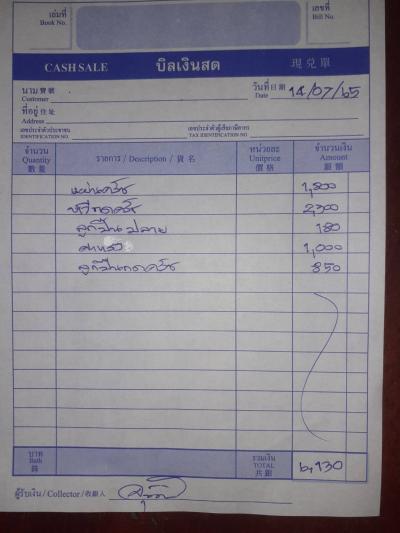 เล่มที่
Book No.
เลขที่
Bill No.
CASH SALE บิลเงินสด 現兌單
นาม 寶號
Customer
วันที่ 日期
Date 14/07/65
ที่อยู่ 住址
Address
เลขประจำตัวประชาชน
IDENTIFICATION NO.
เลขประจำตัวผู้เสียภาษีอากร
TAX IDENTIFICATION NO.
จำนวน
Quantity
數量
รายการ / Description / 貨名
หน่วยละ
Unitprice
價格
จำนวนเงิน
Amount
銀額
1,800
2,300
ลูกปืนปลาย 180
1,000
ลูกปืนกดคลัช 850
บาท
Bath
銖
รวมเงิน
TOTAL
共銀
6,130
ผู้รับเงิน / Collector / 收銀人